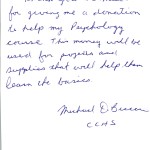 for giving me a donation
to help my Psychology
course. This money will be
used for projects and
supplies that will help them
learn the basics
Michael D
CCHS